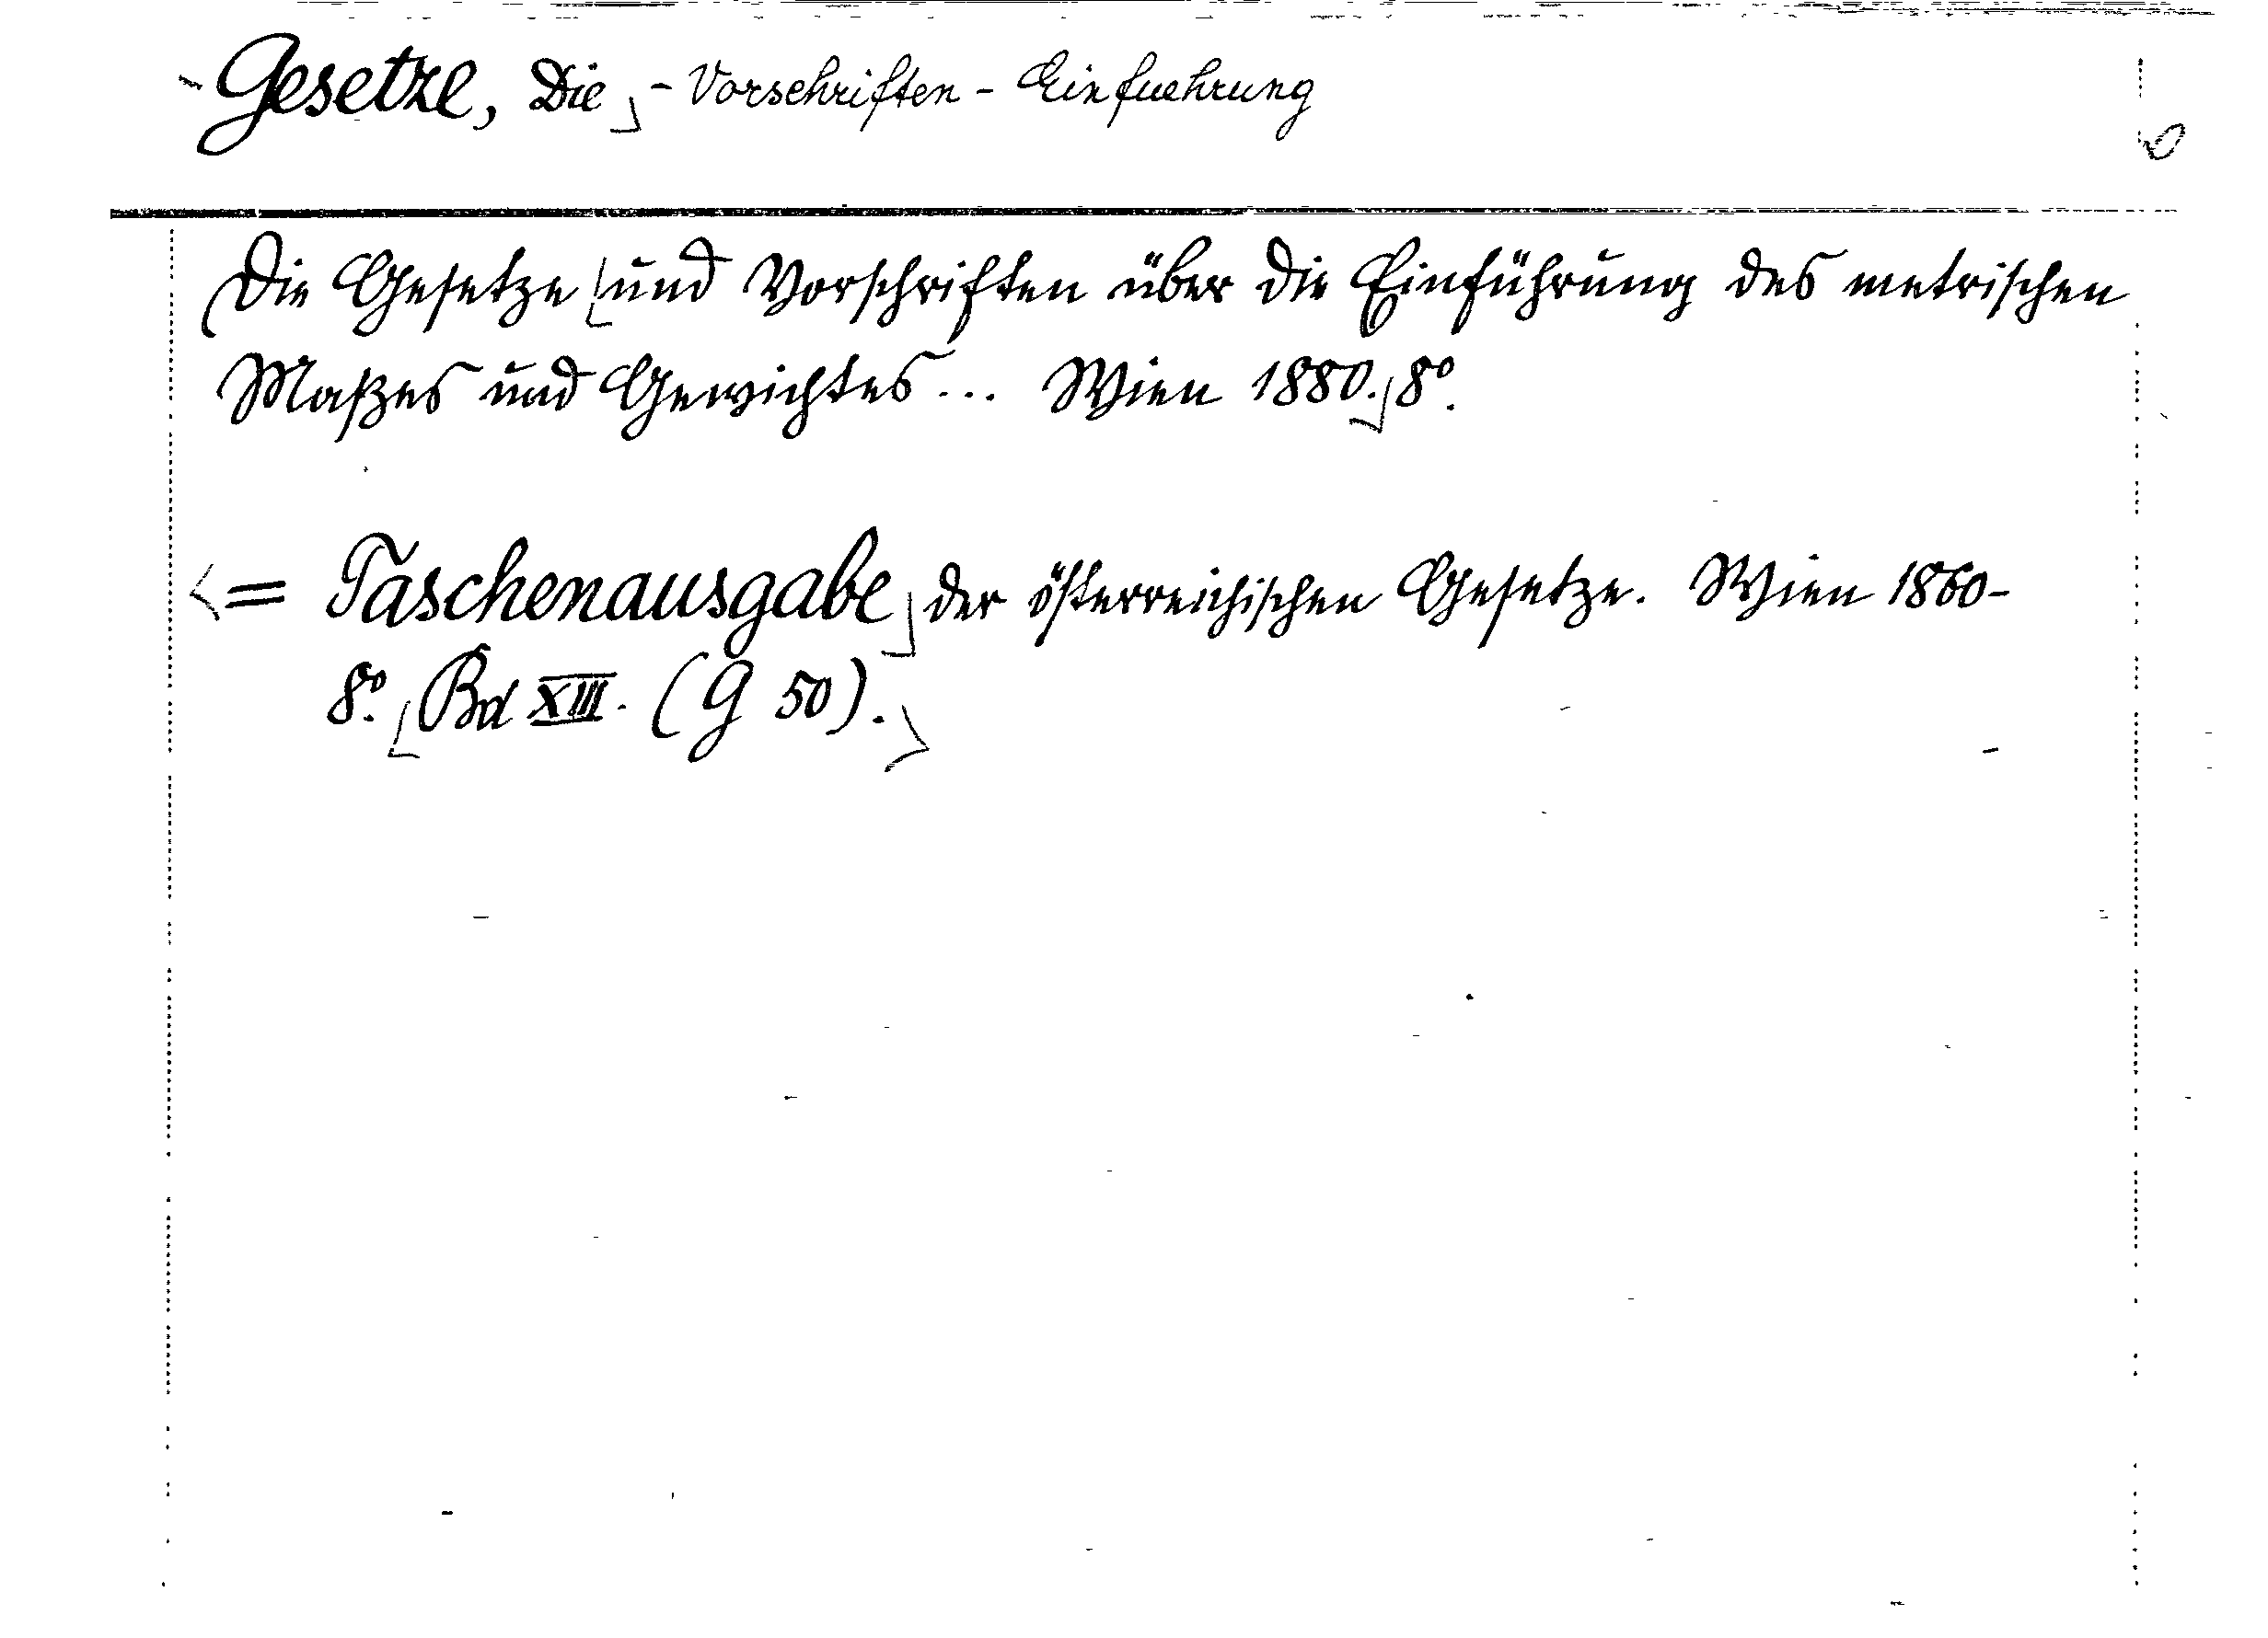 Gesetze, Die - Vorschriften - Einfuehrung
Die Gesetze und Vorschriften über die Einführung des metrischen
Maßes und Gewichtes... Wien 1880. 8º.
= Taschenausgabe der österreichischen Gesetze. Wien 1860-
8º. Bd XIII. (G 50).